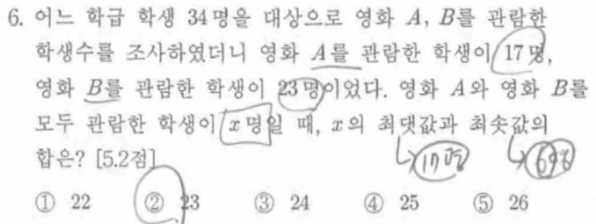 6. 어느 학급 학생 34명을 대상으로 영화 A, B를 관람한
학생수를 조사하였더니 영화 A를 관람한 학생이 17명,
영화 B를 관람한 학생이 23명이었다. 영화 A와 영화 B를
모두 관람한 학생이 x명일 때, x의 최댓값과 최솟값의
합은? [5.2점]
17명 6명
① 22 ② 23 ③ 24 ④ 25 ⑤ 26